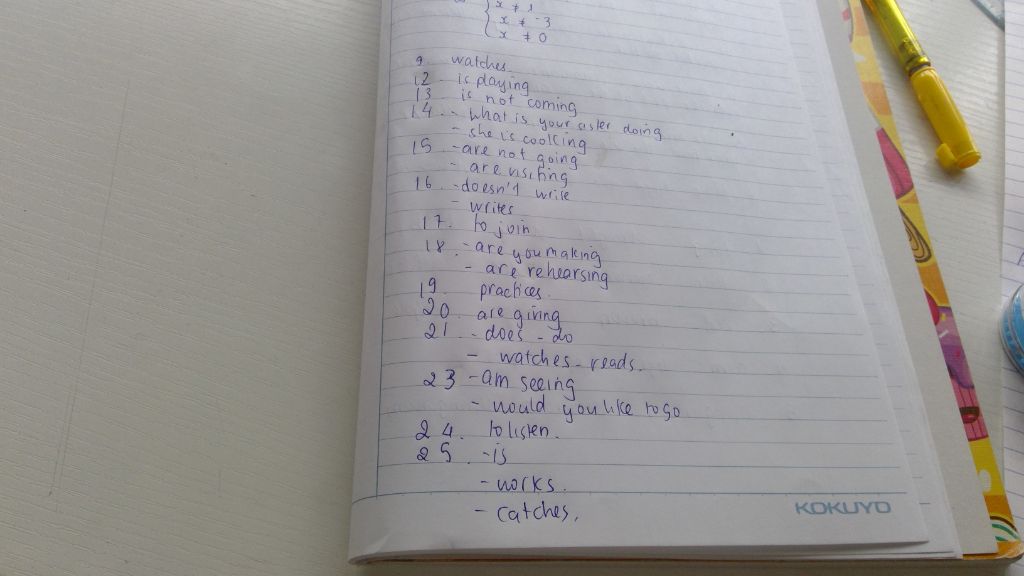 x ≠ 1
x ≠ -3
x ≠ 0
9 watches
12 is playing
13 is not coming
14 - what is your sister doing
- she is cooking
15 - are not going
- are visiting
16 - doesn't write
- writes
17. to join
18. - are you making
- are rehearsing
19. practices.
20. are giving
21 - does - do
- watches - reads.
23 - am seeing
- would you like to go
24. to listen.
25. - is
- works.
- catches.
KOKUYO